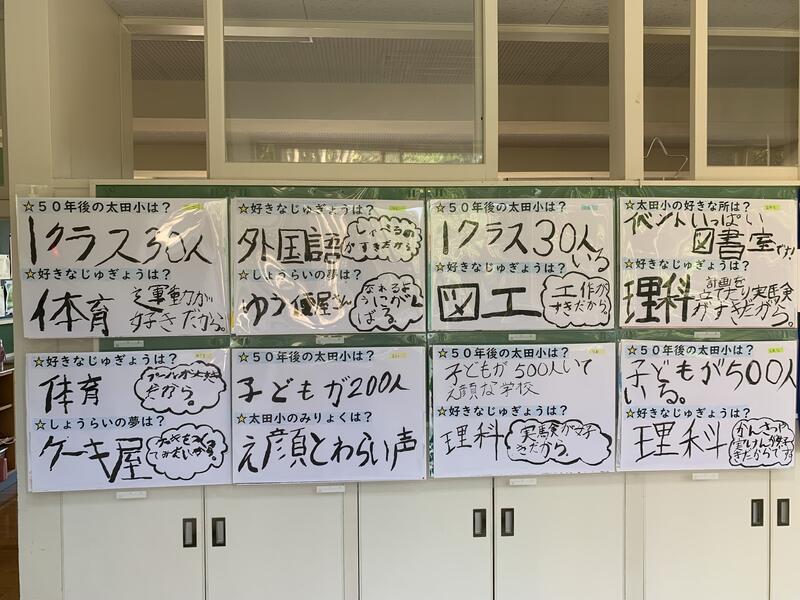 ☆５０年後の太田小は？
1クラス30人
☆好きなじゅぎょうは？
体育
運動が
好きだから。
☆好きなじゅぎょうは？
外国語
すきだから
☆しょうらいの夢は？
ゆう便屋さん
☆５０年後の太田小は？
1クラス30人
いる
☆好きなじゅぎょうは？
図工
工作が
すきだから。
☆太田小の好きな所は？
イベントいっぱい
図書室です!
☆好きなじゅぎょうは？
理科
計画を
立てたり実験
がすきだから。
☆好きなじゅぎょうは？
体育
プールが大好き
だから。
☆しょうらいの夢は？
ケーキ屋
☆５０年後の太田小は？
子どもが200人
☆太田小のみりょくは？
え顔とわらい声
☆５０年後の太田小は？
子どもが500人いて
え顔な学校
☆好きなじゅぎょうは？
理科
実験が好き
だから。
☆５０年後の太田小は？
子どもが500人
いる。
☆好きなじゅぎょうは？
理科